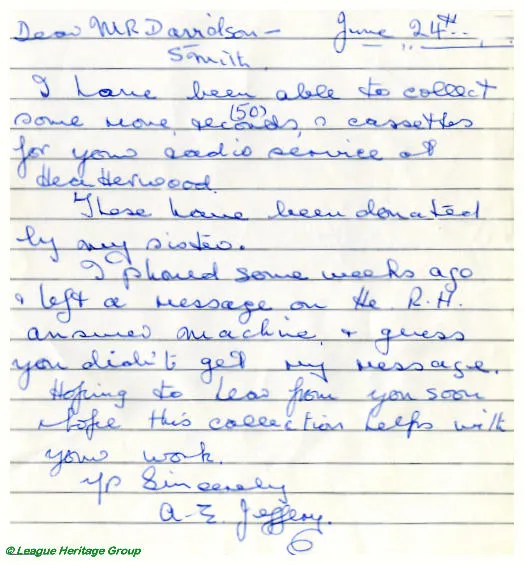 Dear MR Davidson-    June 24th..
Smith.
I have been able to collect
some more, records, (50) & cassettes
for your radio service at
Heatherwood.
These have been donated
by my sister.
I phoned some weeks ago
& left a message on the R.H.
answer machine, & guess
you didn't get my message.
Hoping to hear from you soon
Hope this collection helps with
your work.
Yrs Sincerely
A-E. Jeffery.
© League Heritage Group